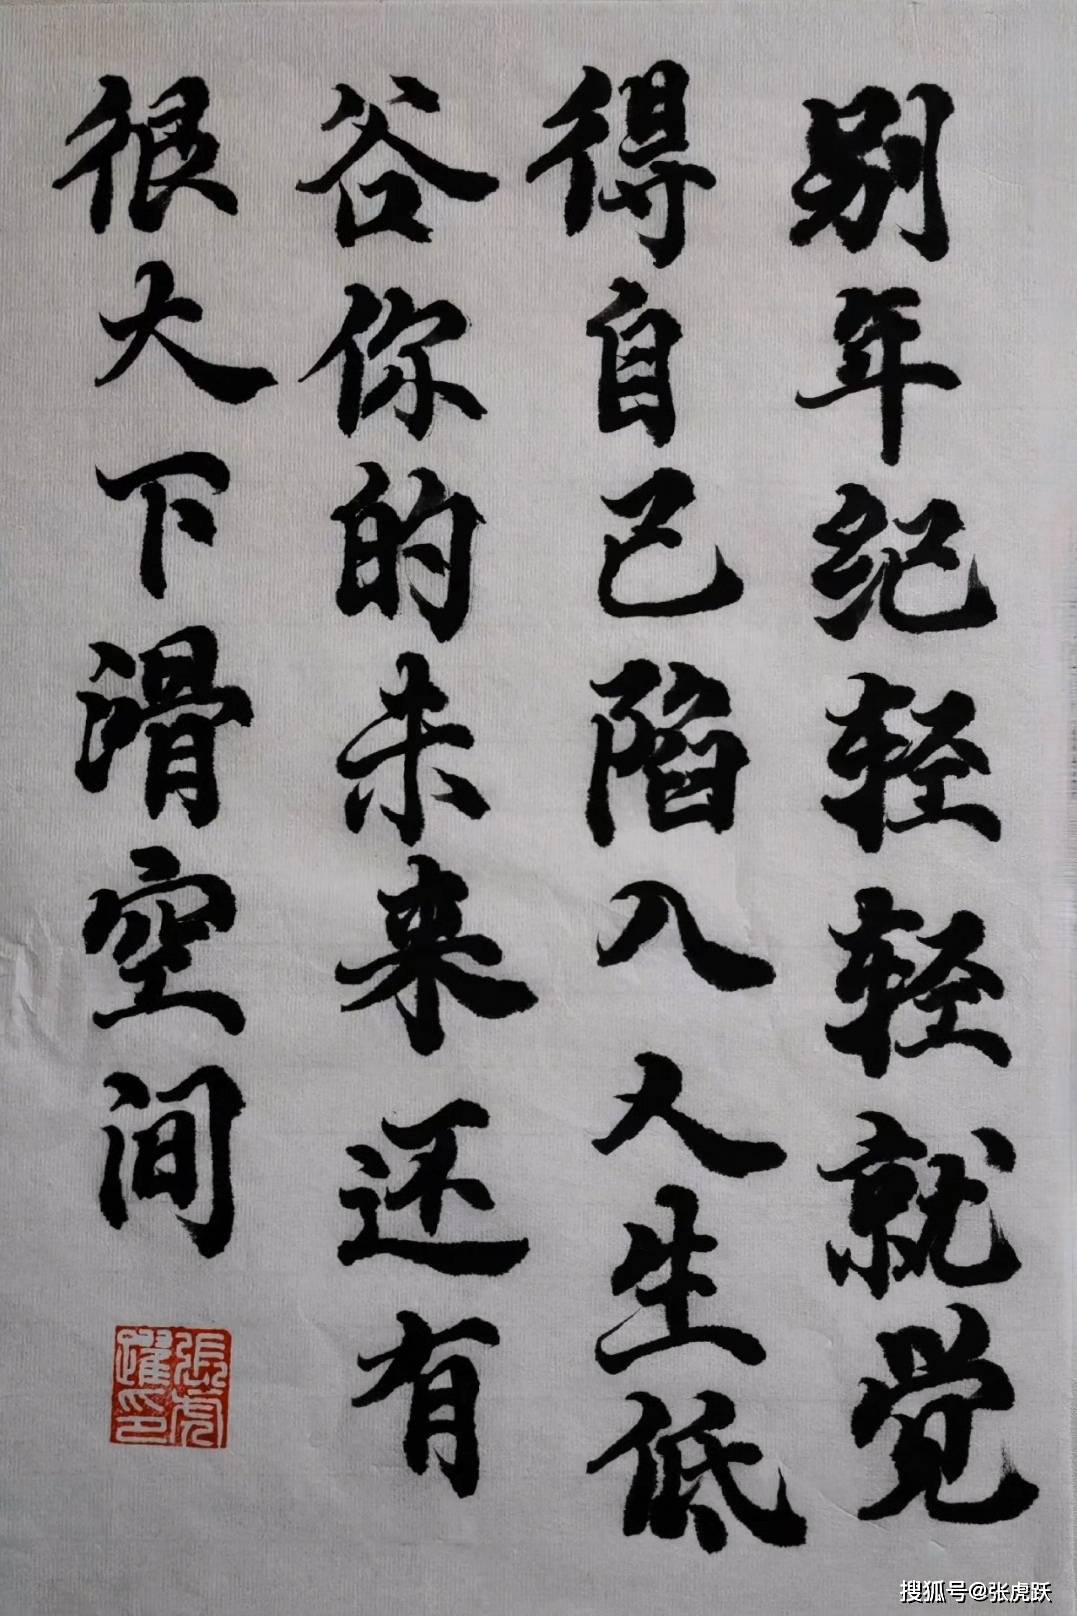 别年纪轻轻就觉
得自己陷入人生低
谷你的未来还有
很大下滑空间
張虎躍印
搜狐号@张虎跃